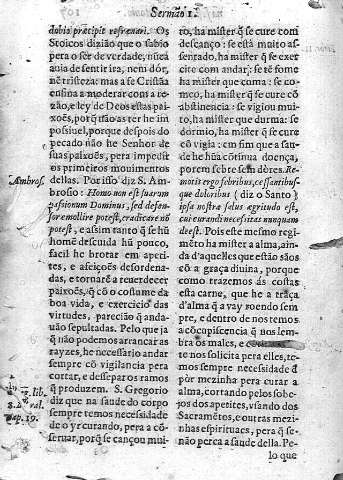 Sermão 1.
dabia præcipit refrenari. Os
Stoicos dizião que o sabio
pera o ser de verdade, nũca
auia de sentir ira, nem dór,
nē tristeza: mas a Se Cristãã
ensina a moderar com a re-
zão, e ley de Deos estas pai-
xões, porq̃ não as ter he im
possiuel, porque despois do
pecado não he Senhor de
suas paixões, pera impedir
os primeiros mouimentos
dellas. Por isso diz S. Am-
Ambros.
brosio: Homo non est suarum
passionum Dominus, sed defen-
sor emollire potest, eradicare nō
potest, e assim tanto q̃ se hū
homē descuida hũ pouco,
facil he brotar em apeti-
tes, e afeições desordena-
das, e tornarē a reuerdecer
paixões, q̃ cō o costume da
boa vida, e exercicio das
virtudes, parecião q̃ anda-
uão sepultadas. Pelo que ja
q̃ não podemos arrancar as
rayzes, he necessario andar
sempre cō vigilancia pera
cortar, e desepar os ramos
q̃ produzem. S. Gregorio
lib.
8.
cap. 19.
diz que na saude do corpo
sempre temos necessidade
de o yr curando, pera a cō-
seruar, porq̃ se cançou mui-
to, ha mister q̃ se cure com
descanço: se está muito as-
sentado, ha mister q̃ se exer
cite com andar: se tē fome
ha mister que coma, se co-
meo, ha mister q̃ se cure cō
abstinencia: se vigiou mui-
to, ha mister que durma: se
dormio, ha mister q̃ se cure
cō vigia: em fim que a sau-
de he hũa continua doença,
porem sebre sem dòres. Re-
motis ergo febribus, cessantibus-
que doloribus (diz o Santo)
ipsa nostra salus agritudo est,
cui curandi necessitas nunquam
deest. Pois este mesmo regi-
mēto ha mister a alma, ain-
da d'aquelles que estão sãos
cō a graça diuina, porque
como trazemos ás costas
esta carne, que he a traça
d'alma q̃ a vay roendo sem
pre, e dentro de nos temos
a cōcupiscencia q̃ nos lem-
bra os males, e
te nos solicita pera elles, te-
mos sempre necessidade d
pòr mezinha pera curar a
alma, cortando pelos sobe-
jos dos apetites, vsando dos
Sacramētos, e outras mezi-
nhas espirituaes, pera q̃ se-
não perca a saude della. Pe-
lo que